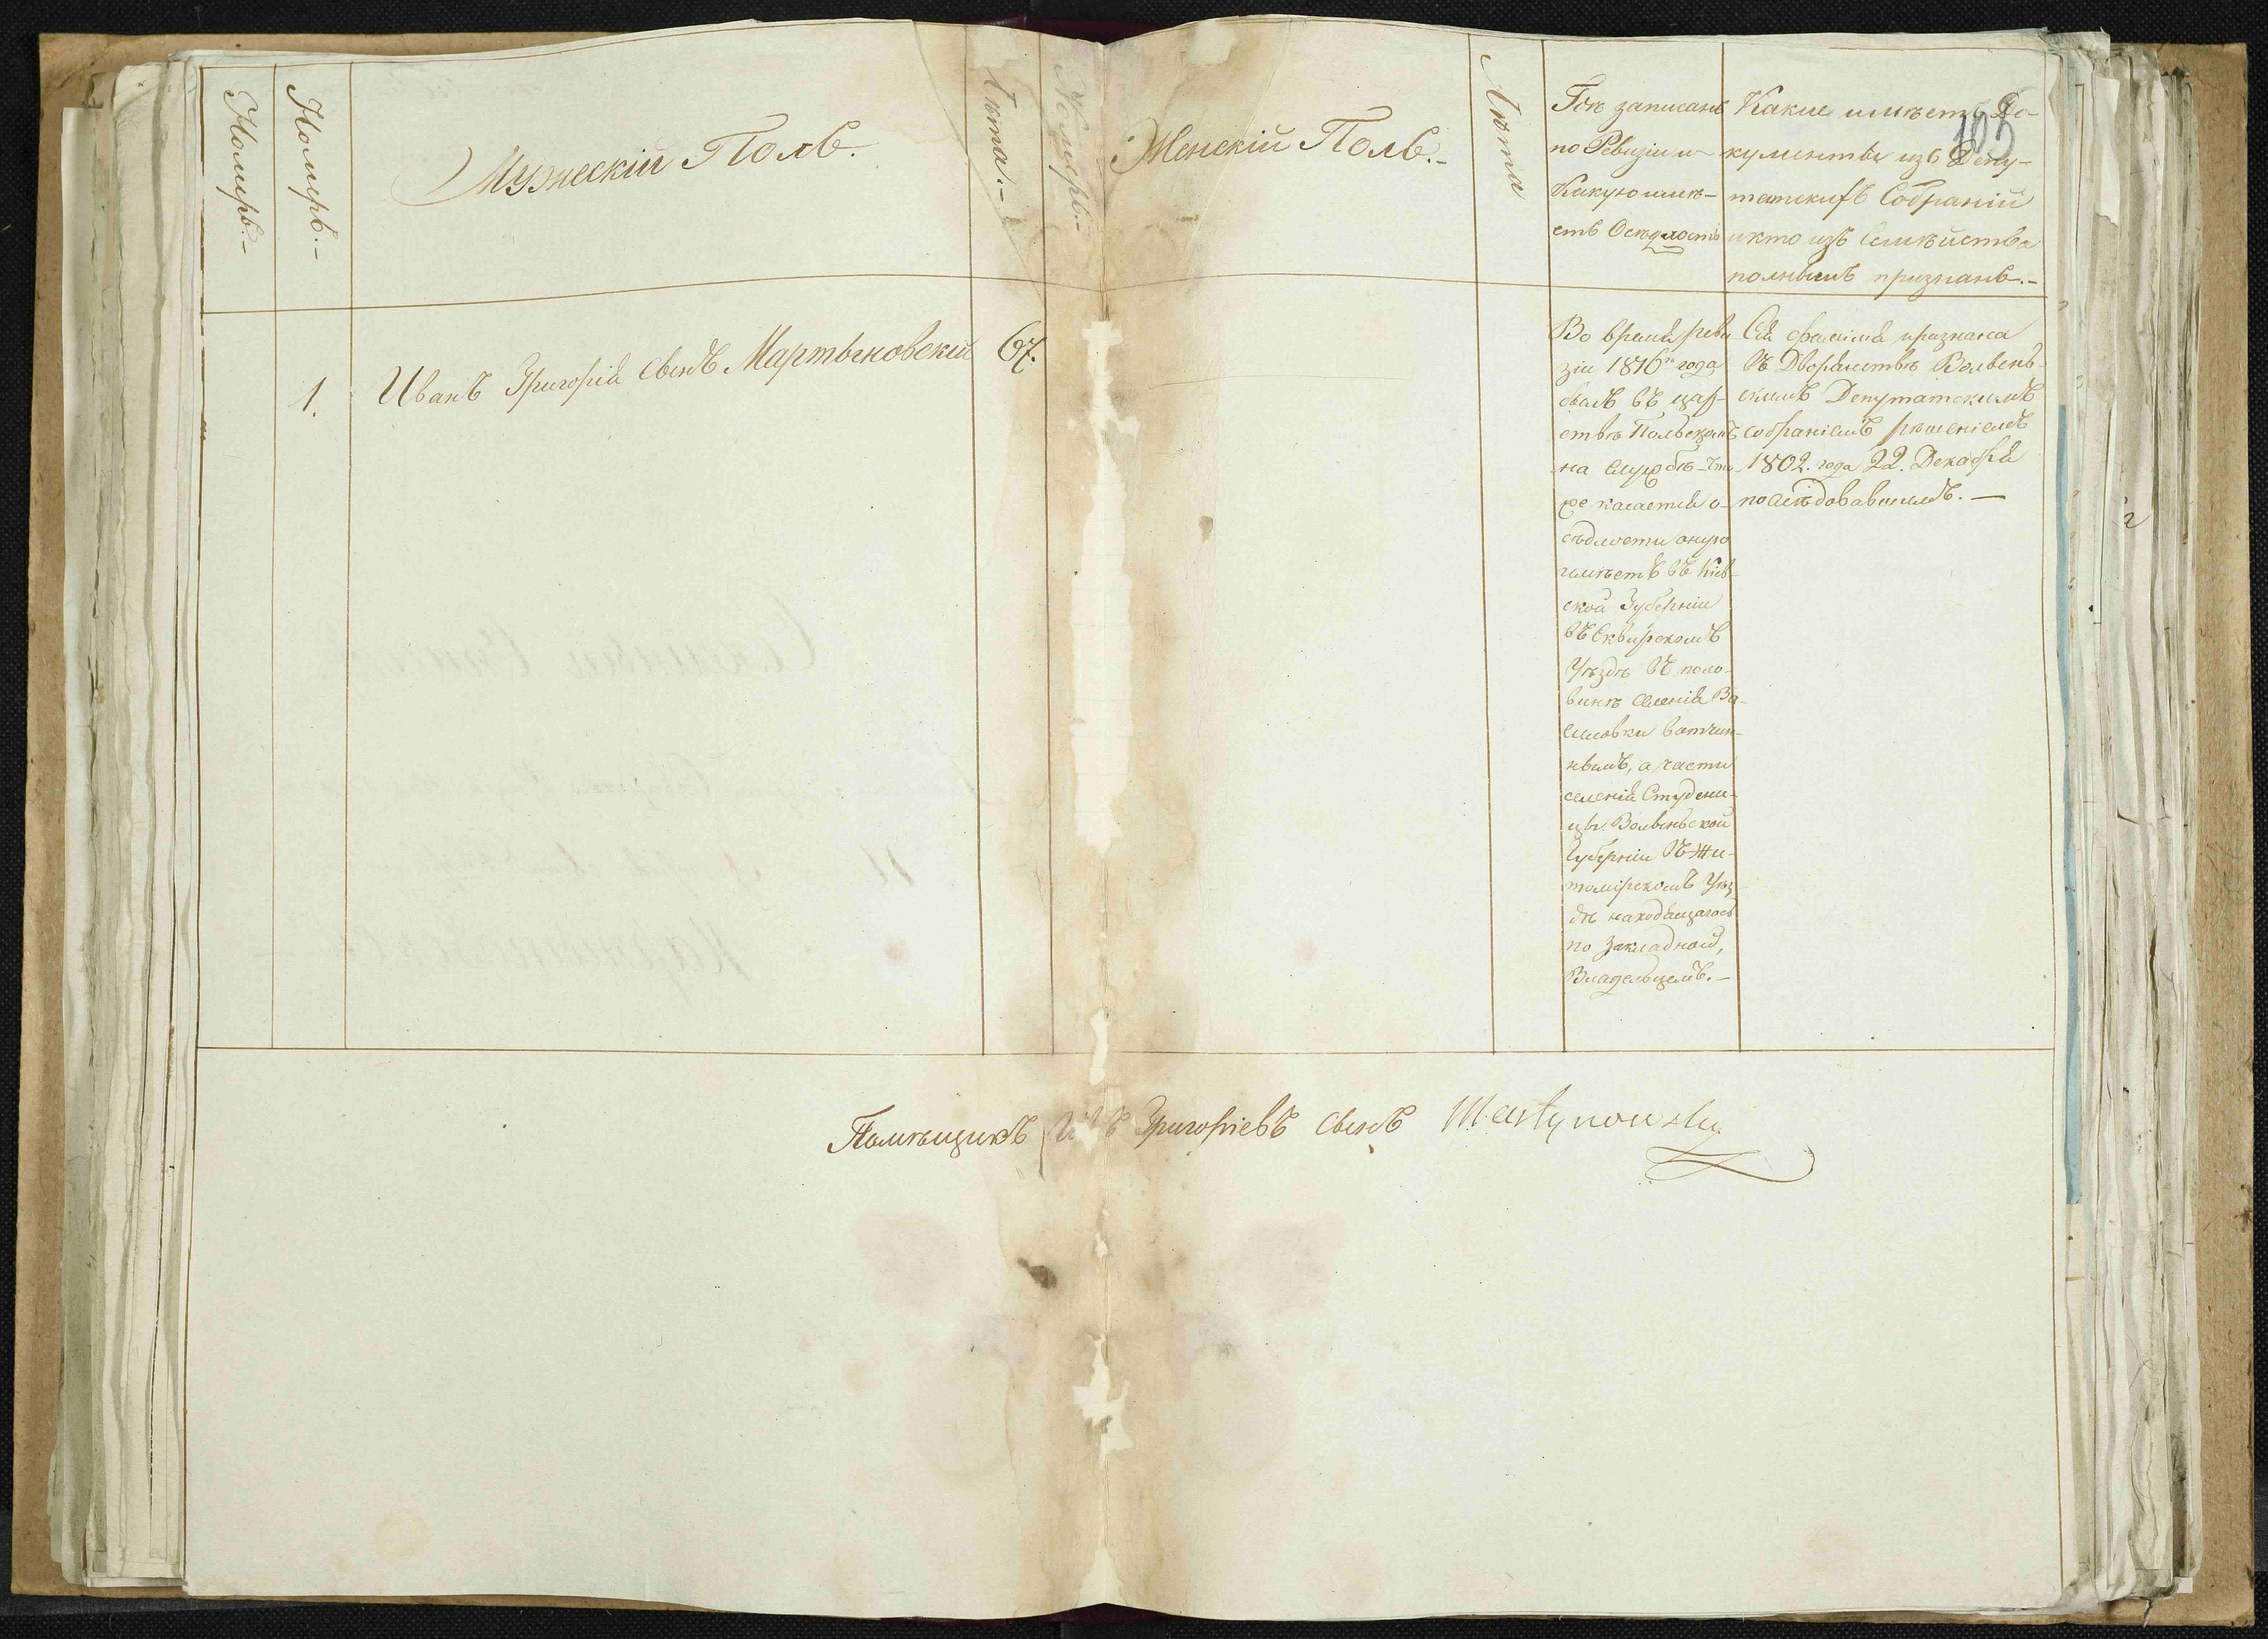 Номеръ.-
Номеръ.-
Мужескій Полъ.
Лѣта.-
Номеръ.-
Женскій Полъ.-
Лѣта
Гдѣ записанъ
по Ревизіи и
Какую имѣ-
етъ Осѣдлость
Какие имѣетъ До-
кументы изъ Депу-
татскихъ Собраній
и кто изъ Семѣйства
полнымъ признанъ.-
105
1.
Иванъ Григорія сынъ Мартыновскій
67.
Во время реви
зіи 1816го года
былъ въ цар-
ствѣ Польскомъ
на службѣ - Что-
же касается о-
сѣдлости оную
имѣетъ въ Кіев-
ской Губерніи
въ Сквирскомъ
Уѣздѣ въ поло-
винѣ селенія Ва-
силовки вотчин-
нымъ, а части
селенія Студени-
цы Волынской
Губерніи въ Жи-
томірскомъ Уѣз
дѣ находящагось
по Закладной,
Владельцемъ.-
Сія фамилія признана
въ Дворянствѣ Волынь-
скимъ Депутатскимъ
собраніемъ рѣшеніемъ
1802. года 22. Декабря
послѣдовавшимъ.-
Помѣщикъ Григоріевъ сынъ Martynowsky
2